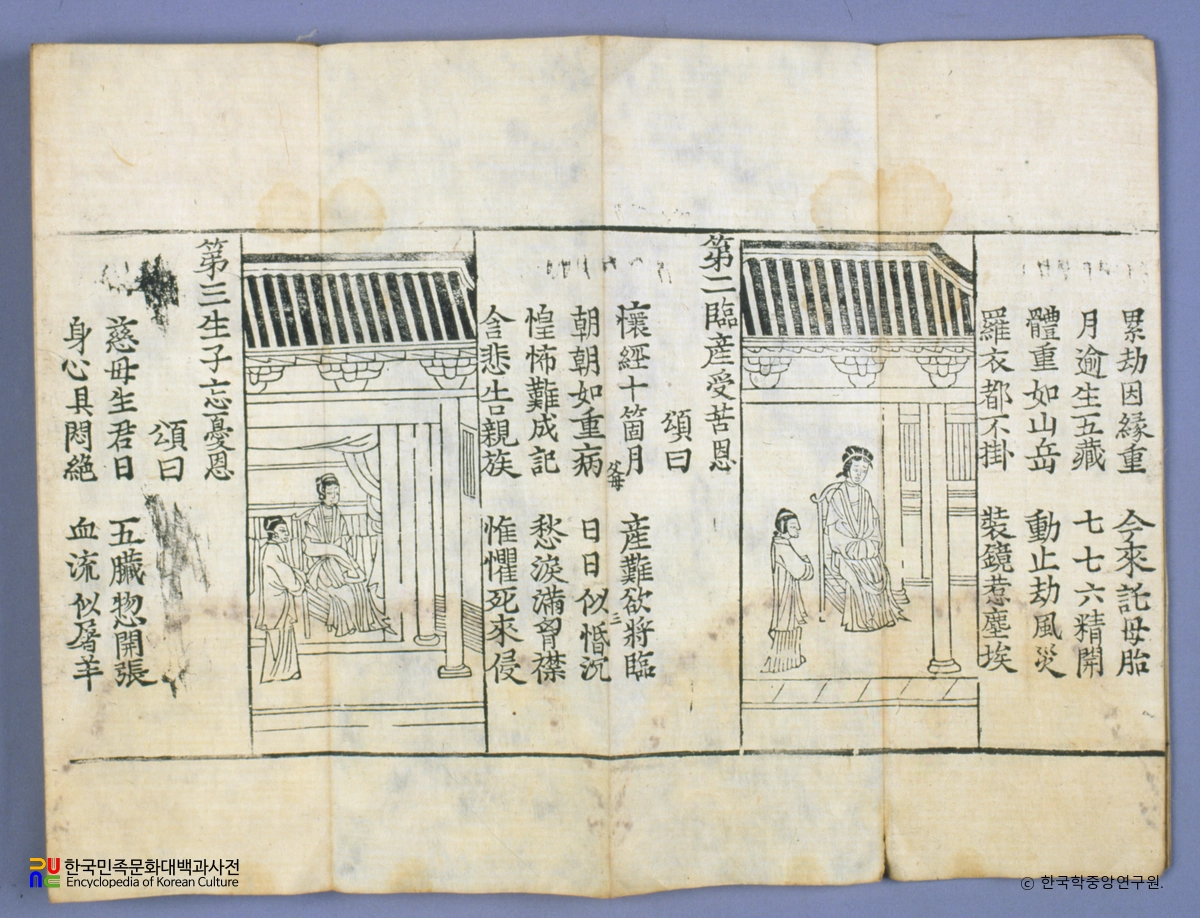 累劫因緣重 今來託母胎
月逾生五藏 七七六精開
體重如山岳 動止劫風災
羅衣都不掛 裝鏡惹塵埃
第二臨産受苦恩
頌曰
懷經十箇月 産難欲將臨
父母 三
朝朝如重病 日日似惛沉
惶怖難成記 愁淚滿胷襟
含悲告親族 惟懼死來侵
第三生子忘憂恩
頌曰
慈母生君日 五臟惣開張
身心具悶絶 血流似屠羊
한국민족문화대백과사전
Encyclopedia of Korean Culture
© 한국학중앙연구원.